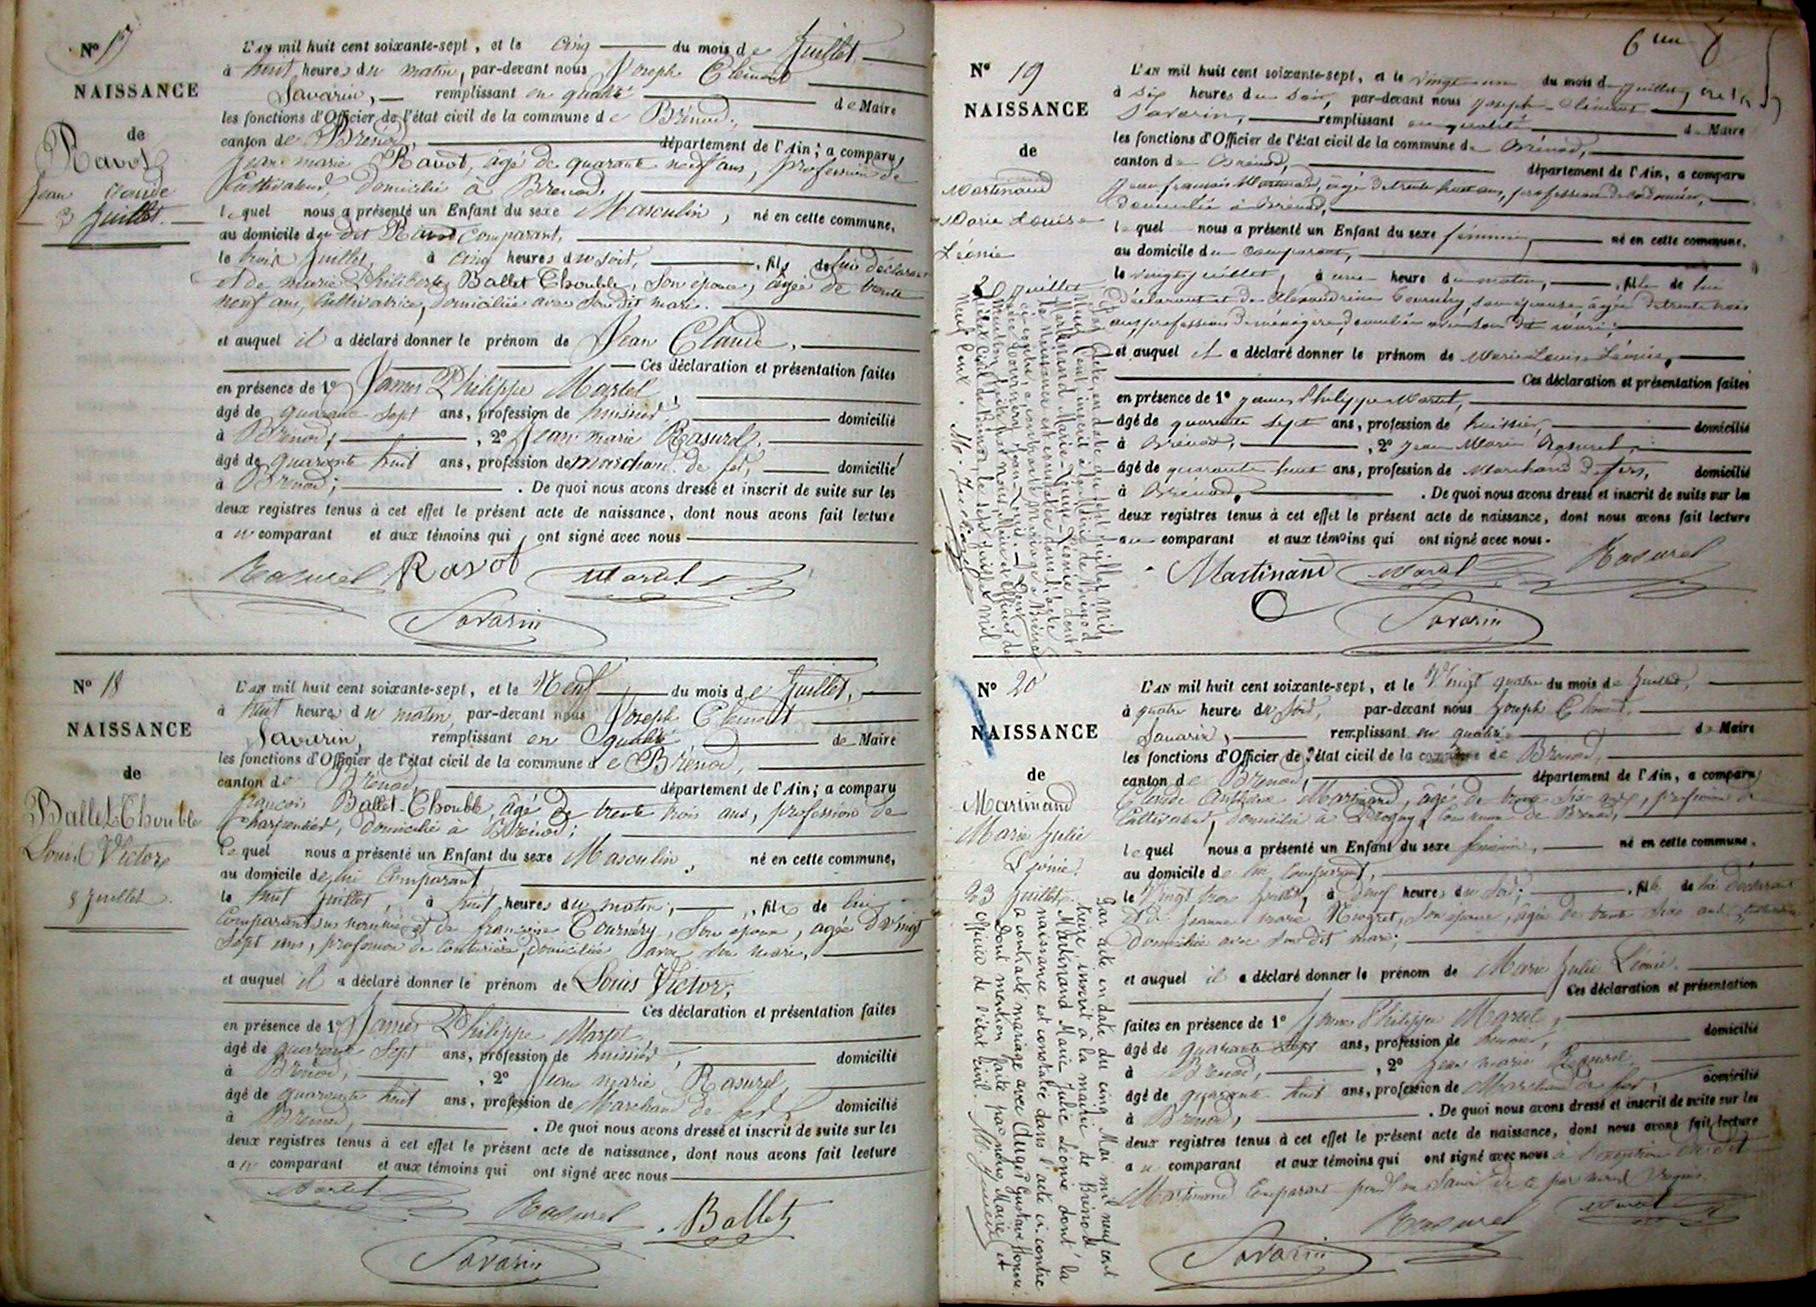 N° 17
NAISSANCE
de
Ravot
Jean Claude
3 Juillet.
L'AN mil huit cent soixante-sept, et le cinq du mois de Juillet
à huit heures du matin, par-devant nous Joseph Clément
Savarin, remplissant en qualité de Maire
les fonctions d'Officier de l'état civil de la commune de Brénod,
canton de Brénod, département de l'Ain; a comparu
Jean marie Ravot, âgé de quarante neuf ans, profession de
Cultivateur, domicilié à Brénod,
lequel nous a présenté un Enfant du sexe Masculin, né en cette commune,
au domicile du dit Ravot comparant,
le trois Juillet, à cinq heures du soir, fils de lui déclarant
et de marie Philiberte Ballet Thouble, son épouse, âgée de trente
neuf ans, cultivatrice, domiciliée avec son dit mari.
et auquel il a déclaré donner le prénom de Jean Claude,
Ces déclaration et présentation faites
en présence de 1° James Philippe Martel,
âgé de quarante sept ans, profession de huissier domicilié
à Brénod, 2° Jean marie Rasurel,
âgé de quarante huit ans, profession de marchand de fer, domicilié
à Brénod; . De quoi nous avons dressé et inscrit de suite sur les
deux registres tenus à cet effet le présent acte de naissance, dont nous avons fait lecture
au comparant et aux témoins qui ont signé avec nous
Rasurel Ravot Martel
Savarin
N° 18
NAISSANCE
de
Ballet-Thouble
Louis Victor
8 Juillet.
L'AN mil huit cent soixante-sept, et le Neuf du mois de Juillet,
à huit heures du matin, par-devant nous Joseph Clément
Savarin, remplissant en qualité de Maire
les fonctions d'Officier de l'état civil de la commune de Brénod,
canton de Brénod, département de l'Ain; a comparu
françois Ballet-Thouble âgé de trente trois ans, profession de
charpentier, domicilié à Brénod;
lequel nous a présenté un Enfant du sexe Masculin, né en cette commune,
au domicile de lui comparant
le huit Juillet, à huit heures du matin, fils de lui
comparant sus nommé et de françoise Tournéry, son épouse, âgée de vingt
sept ans, profession de couturière, domiciliée avec son mari,
et auquel il a déclaré donner le prénom de Louis Victor,
Ces déclaration et présentation faites
en présence de 1° James Philippe Martel
âgé de quarante sept ans, profession de huissier, domicilié
à Brénod, 2° Jean marie Rasurel,
âgé de quarante huit ans, profession de Marchand de fer, domicilié
à Brénod, . De quoi nous avons dressé et inscrit de suite sur les
deux registres tenus à cet effet le présent acte de naissance, dont nous avons fait lecture
au comparant et aux témoins qui ont signé avec nous
Martel
Rasurel Ballet
Savarin
N° 19
NAISSANCE
de
Martinand
Marie Louise
Léonie
20 juillet
L'AN mil huit cent soixante-sept, et le vingt un du mois de juillet,
à six heures du soir, par-devant nous Joseph Clément
Savarin, remplissant en qualité de Maire
les fonctions d'Officier de l'état civil de la commune de Brénod,
canton de Brénod, département de l'Ain, a comparu
Jean françois Martinand, âgé de trente huit ans, profession de
domicilié à Brénod,
lequel nous a présenté un Enfant du sexe féminin, né en cette commune,
au domicile du comparant,
le vingt juillet, à une heure du matin, fille de lui
déclarant et de Alexandrine Tournéry, son épouse, âgée de trente trois
ans, profession de ménagère, domiciliée avec son dit mari;
et auquel il a déclaré donner le prénom de Marie Louise Léonie,
Ces déclaration et présentation faites
en présence de 1° James Philippe Martel,
âgé de quarante sept ans, profession de huissier, domicilié
à Brénod, 2° Jean Marie Rasurel,
âgé de quarante huit ans, profession de Marchand de fers, domicilié
à Brénod, . De quoi nous avons dressé et inscrit de suite sur les
deux registres tenus à cet effet le présent acte de naissance, dont nous avons fait lecture
au comparant et aux témoins qui ont signé avec nous.
Martinand Martel Rasurel
Savarin
N° 20
NAISSANCE
de
Martinand
Marie Julie
Léonie
23 juillet
Par acte en date du cinq Mai mil neuf cent
treize inscrit à la mairie de Brénod
Martinand Marie Julie Léonie dont la
naissance est constatée dans l'acte ci-contre
a contracté mariage avec Augst Gustave Honoré.
Dont mention faite par nous, Maire et
officier de l'état civil.
L'AN mil huit cent soixante-sept, et le Vingt quatre du mois de Juillet,
à quatre heures du soir, par-devant nous Joseph Clément
Savarin, remplissant en qualité de Maire
les fonctions d'Officier de l'état civil de la commune de Brénod,
canton de Brénod, département de l'Ain, a comparu
Claude Martinand, âgé de trente six ans, profession de
Cultivateur, domicilié à commune de Brénod,
lequel nous a présenté un Enfant du sexe féminin, né en cette commune,
au domicile de lui comparant,
le Vingt trois Juillet, à neuf heures du soir; fille de lui déclarant
et de Jeanne marie son épouse, âgée de trente ans,
Domiciliée avec son dit mari;
et auquel il a déclaré donner le prénom de Marie Julie Léonie.
Ces déclaration et présentation
faites en présence de 1° James Philippe Martel, domicilié
âgé de quarante sept ans, profession de huissier,
à Brénod, 2° Jean marie Rasurel,
âgé de quarante huit ans, profession de Marchand de fer, domicilié
à Brénod, . De quoi nous avons dressé et inscrit de suite sur les
deux registres tenus à cet effet le présent acte de naissance, dont nous avons fait lecture
au comparant et aux témoins qui ont signé avec nous à l'exception du dit
Martinand comparant pour ne savoir de ce par nous requis.
Rasurel Martel
Savarin